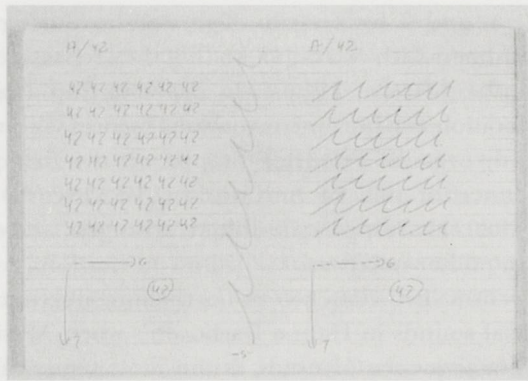 A/42
42 42 42 42 42 42
42 42 42 42 42 42
42 42 42 42 42 42
42 42 42 42 42 42
42 42 42 42 42 42
42 42 42 42 42 42
42 42 42 42 42 42
6
42
7
A/42
6
42
7